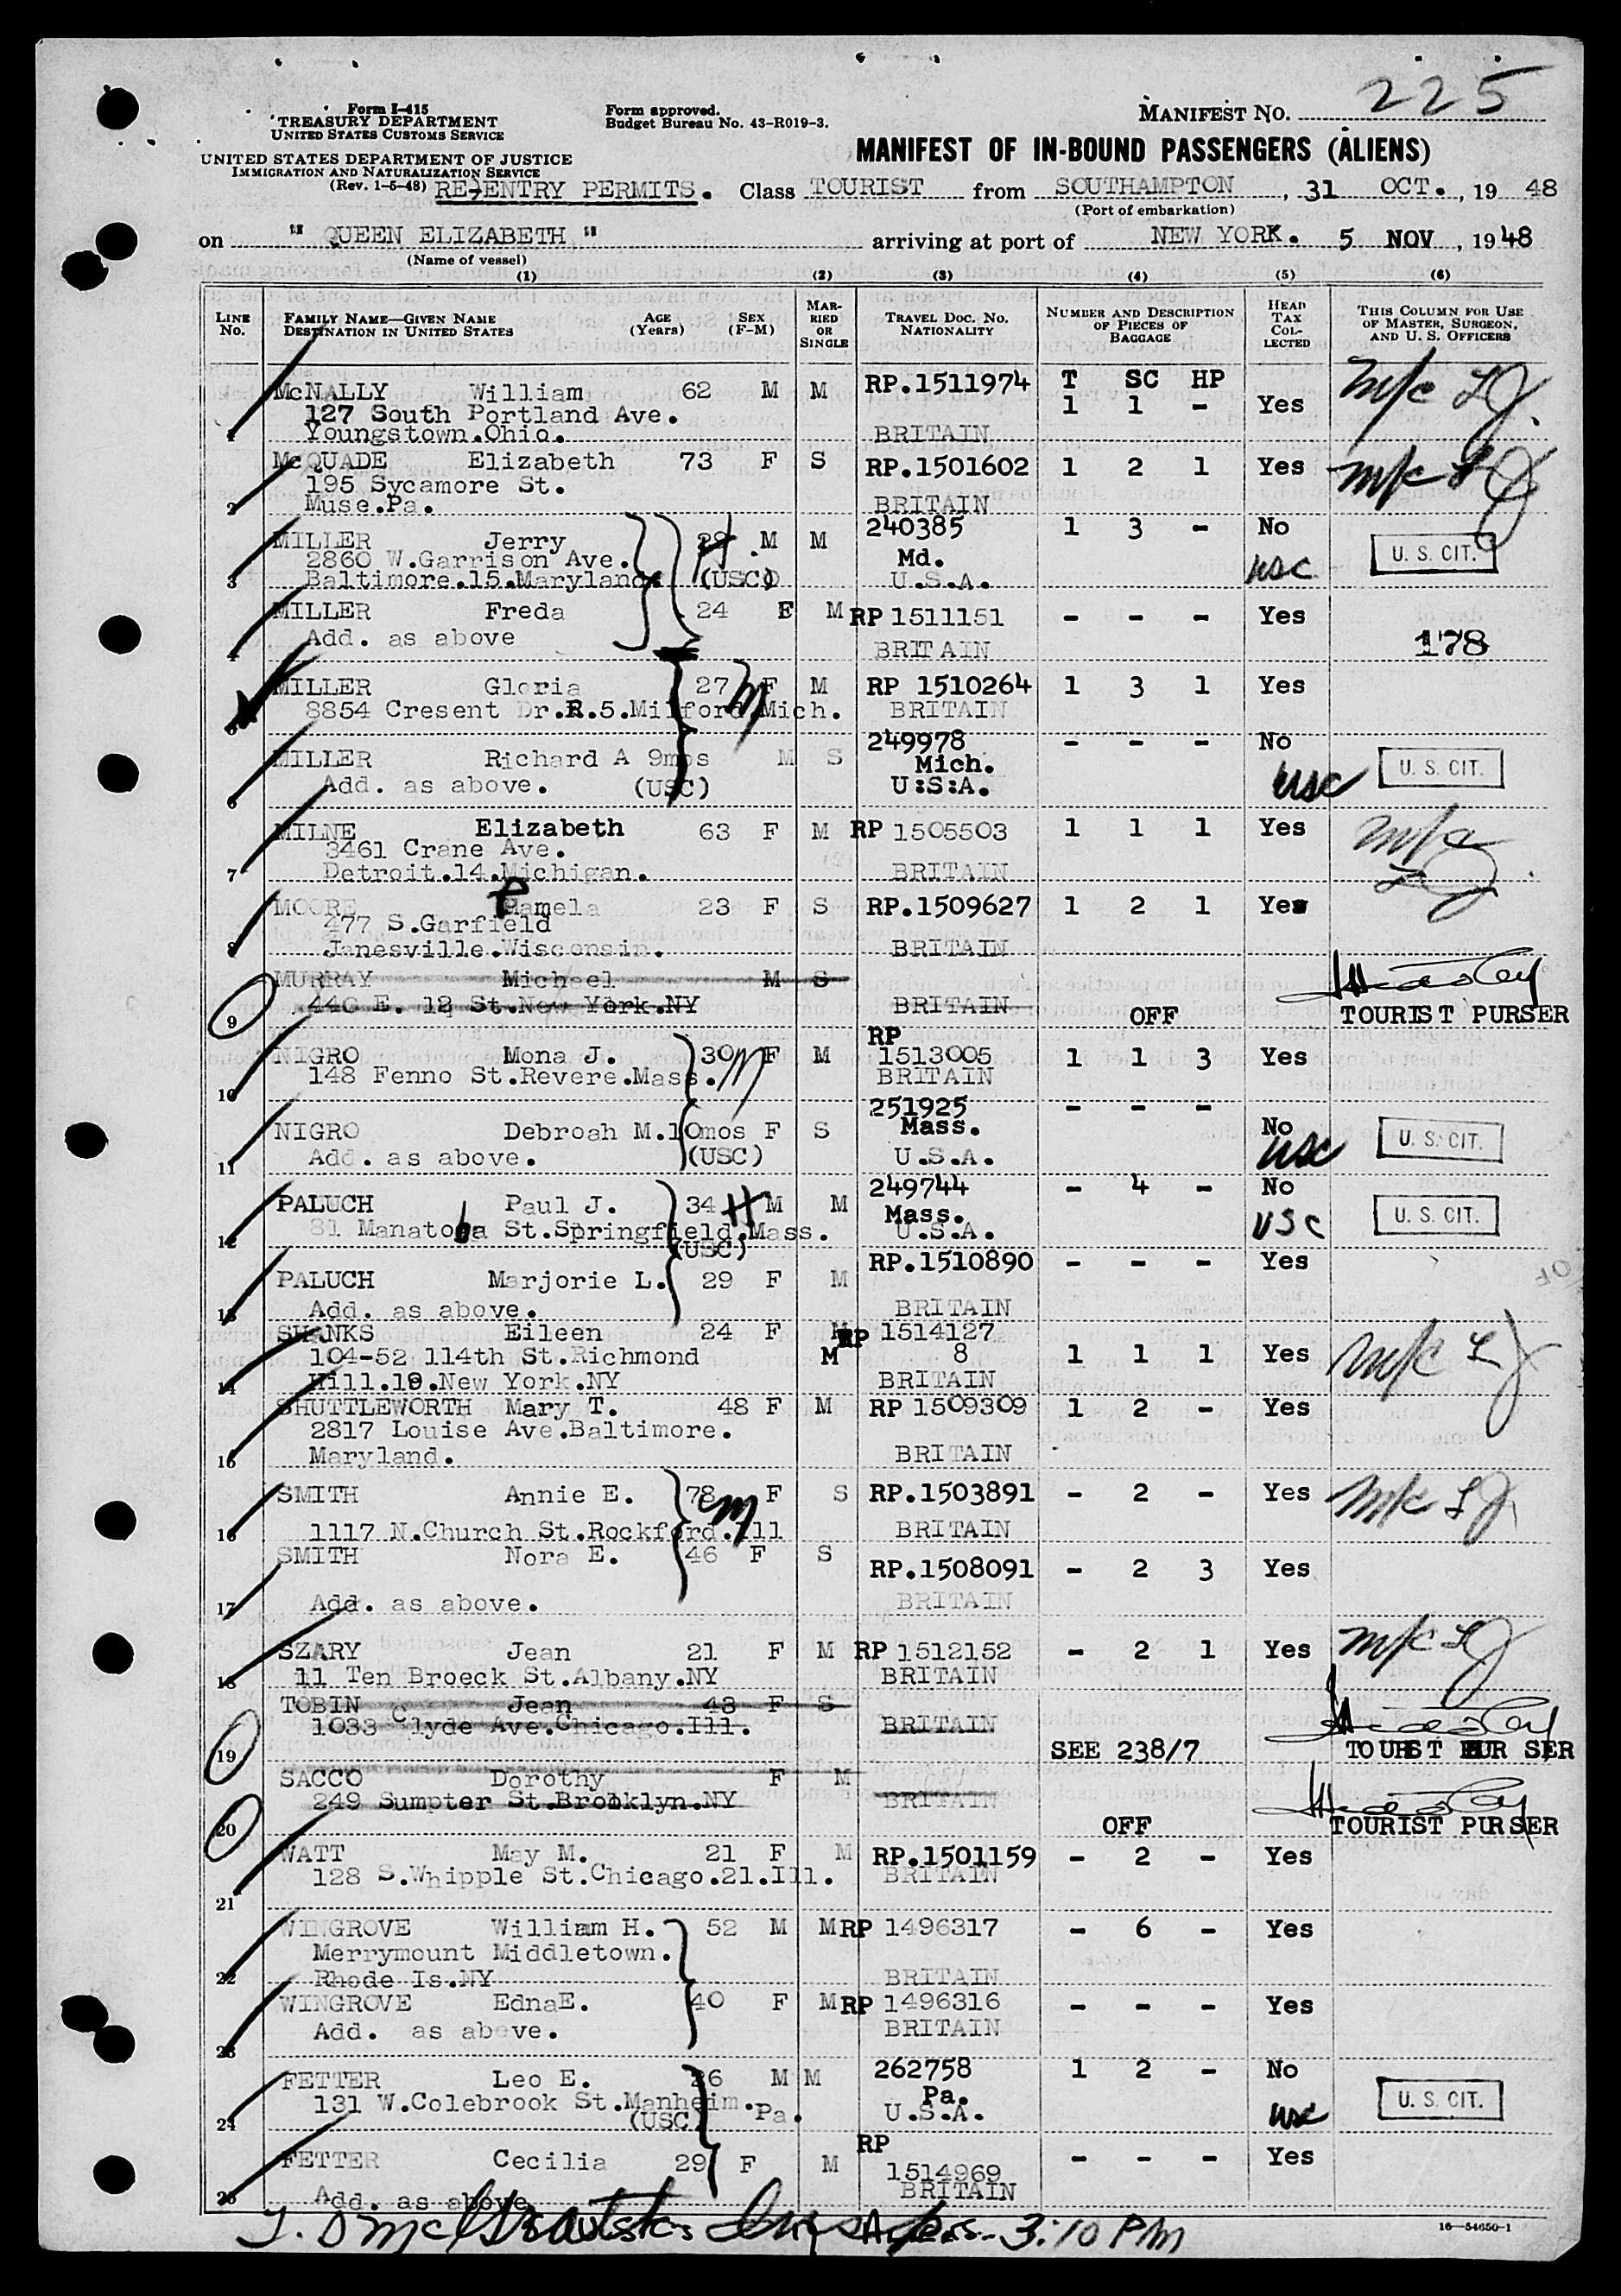 225
Form I-415
TREASURY DEPARTMENT
UNITED STATES CUSTOMS SERVICE
Form approved.
Budget Bureau No. 43-R019-3.
MANIFEST NO.
UNITED STATES DEPARTMENT OF JUSTICE
IMMIGRATION AND NATURALIZATION SERVICE
(Rev. 1-5-48)
MANIFEST OF IN-BOUND PASSENGERS (ALIENS)
RE-ENTRY PERMITS. Class TOURIST from SOUTHAMPTON, 31 OCT., 19 48
(Port of embarkation)
on " QUEEN ELIZABETH " arriving at port of NEW YORK. 5 NOV, 1948
(Name of vessel)
(1) (2) (3) (4) (5) (6)
LINE No. FAMILY NAME—GIVEN NAME DESTINATION IN UNITED STATES AGE (Years) SEX (F-M) MARRIED OR SINGLE TRAVEL DOC. NO. NATIONALITY NUMBER AND DESCRIPTION OF PIECES OF BAGGAGE HEAD TAX COLLECTED THIS COLUMN FOR USE OF MASTER, SURGEON, AND U. S. OFFICERS
T SC HP
McNALLY William 62 M M RP.1511974 1 1 - Yes m/c LJ
127 South Portland Ave.
1 Youngstown.Ohio. BRITAIN
McQUADE Elizabeth 73 F S RP.1501602 1 2 1 Yes m/c LJ
195 Sycamore St.
2 Muse.Pa. BRITAIN
MILLER Jerry M M 240385 1 3 - No
2860 W.Garrison Ave. Md. usc U. S. CIT.
3 Baltimore.15.Maryland. (USC) U.S.A.
MILLER Freda 24 F M RP 1511151 - - - Yes
4 Add. as above BRITAIN 178
MILLER Gloria 27 F M RP 1510264 1 3 1 Yes
5 8854 Cresent Dr.R.5.Milford.Mich. BRITAIN
MILLER Richard A 9mos M S 249978 - - - No
Mich. usc U. S. CIT.
6 Add. as above. (USC) U:S:A.
MILNE Elizabeth 63 F M RP 1505503 1 1 1 Yes m/c LJ
3461 Crane Ave.
7 Detroit.14.Michigan. BRITAIN
MOORE Pamela 23 F S RP.1509627 1 2 1 Yes
477 S.Garfield
8 Janesville.Wisconsin. BRITAIN
MURRAY Michael M S
9 440 E. 12 St.New York.NY BRITAIN OFF TOURIST PURSER
NIGRO Mona J. 30 F M RP 1513005 1 1 3 Yes
10 148 Fenno St.Revere.Mass. BRITAIN
NIGRO Debroah M.10mos F S 251925 - - - No
Mass. usc U. S. CIT.
11 Add. as above. (USC) U.S.A.
PALUCH Paul J. 34 M M 249744 - 4 - No
Mass. USC U. S. CIT.
12 81 Manatoba St.Springfield.Mass. (USC) U.S.A.
PALUCH Marjorie L. 29 F M RP.1510890 - - - Yes
13 Add. as above. BRITAIN
SHANKS Eileen 24 F M RP 1514127
104-52 114th St.Richmond M 8 1 1 1 Yes m/c LJ
14 Hill.19.New York.NY BRITAIN
SHUTTLEWORTH Mary T. 48 F M RP 1509309 1 2 - Yes
2817 Louise Ave.Baltimore.
15 Maryland. BRITAIN
SMITH Annie E. 78 F S RP.1503891 - 2 - Yes m/c LJ
16 1117 N.Church St.Rockford.Ill BRITAIN
SMITH Nora E. 46 F S RP.1508091 - 2 3 Yes
17 Add. as above. BRITAIN
SZARY Jean 21 F M RP 1512152 - 2 1 Yes m/c LJ
18 11 Ten Broeck St.Albany.NY BRITAIN
TOBIN Jean 43 F S
1033 Clyde Ave.Chicago.Ill. BRITAIN
19 SEE 238/7 TOURIST PURSER
SACCO Dorothy F M
249 Sumpter St.Brooklyn.NY BRITAIN
20 OFF TOURIST PURSER
WATT May M. 21 F M RP.1501159 - 2 - Yes
21 128 S.Whipple St.Chicago.21.Ill. BRITAIN
WINGROVE William H. 52 M M RP 1496317 - 6 - Yes
Merrymount Middletown.
22 Rhode Is.NY BRITAIN
WINGROVE EdnaE. 40 F M RP 1496316 - - - Yes
23 Add. as above. BRITAIN
FETTER Leo E. 26 M M 262758 1 2 - No
131 W.Colebrook St.Manheim.Pa. Pa. usc U. S. CIT.
24 (USC) U.S.A.
FETTER Cecilia 29 F M RP 1514969 - - - Yes
25 Add. as above BRITAIN
3:10 PM
16—54650-1